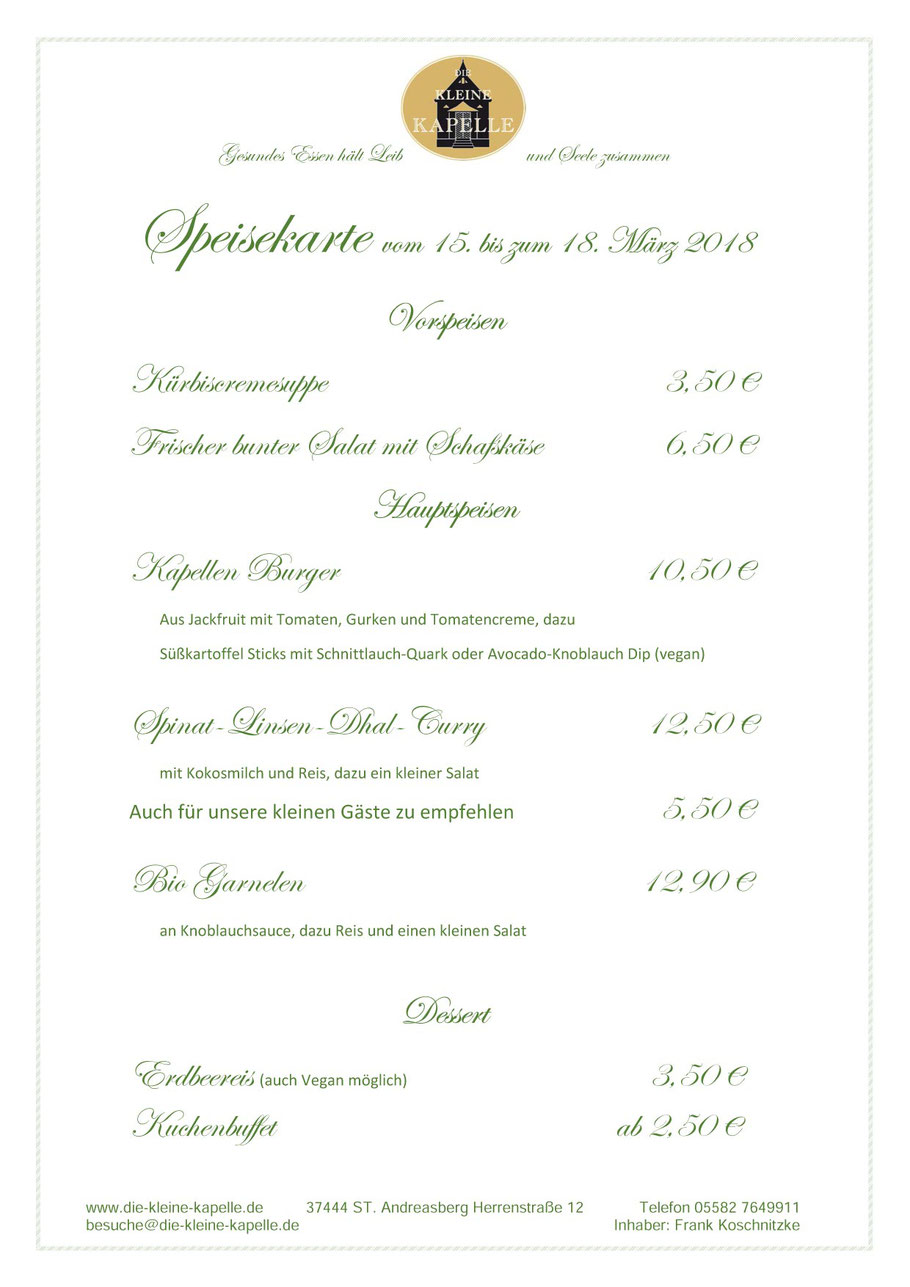 DIE
KLEINE
KAPELLE
Gesundes Essen hält Leib und Seele zusammen
Speisekarte vom 15. bis zum 18. März 2018
Vorspeisen
Kürbiscremesuppe 3,50 €
Frischer bunter Salat mit Schafskäse 6,50 €
Hauptspeisen
Kapellen Burger 10,50 €
Aus Jackfruit mit Tomaten, Gurken und Tomatencreme, dazu
Süßkartoffel Sticks mit Schnittlauch-Quark oder Avocado-Knoblauch Dip (vegan)
Spinat-Linsen-Dhal-Curry 12,50 €
mit Kokosmilch und Reis, dazu ein kleiner Salat
Auch für unsere kleinen Gäste zu empfehlen 5,50 €
Bio Garnelen 12,90 €
an Knoblauchsauce, dazu Reis und einen kleinen Salat
Dessert
Erdbeereis (auch Vegan möglich) 3,50 €
Kuchenbuffet ab 2,50 €
www.die-kleine-kapelle.de 37444 ST. Andreasberg Herrenstraße 12 Telefon 05582 7649911
besuche@die-kleine-kapelle.de Inhaber: Frank Koschnitzke